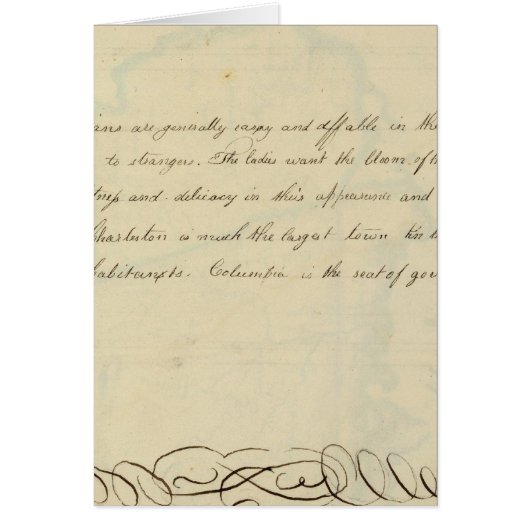 ans are generally easy and affable in the
to strangers. The ladies want the bloom of
tness and delicacy in this appearance and
Charleston is much the largest town in
habitanxts. Columbia is the seat of gov